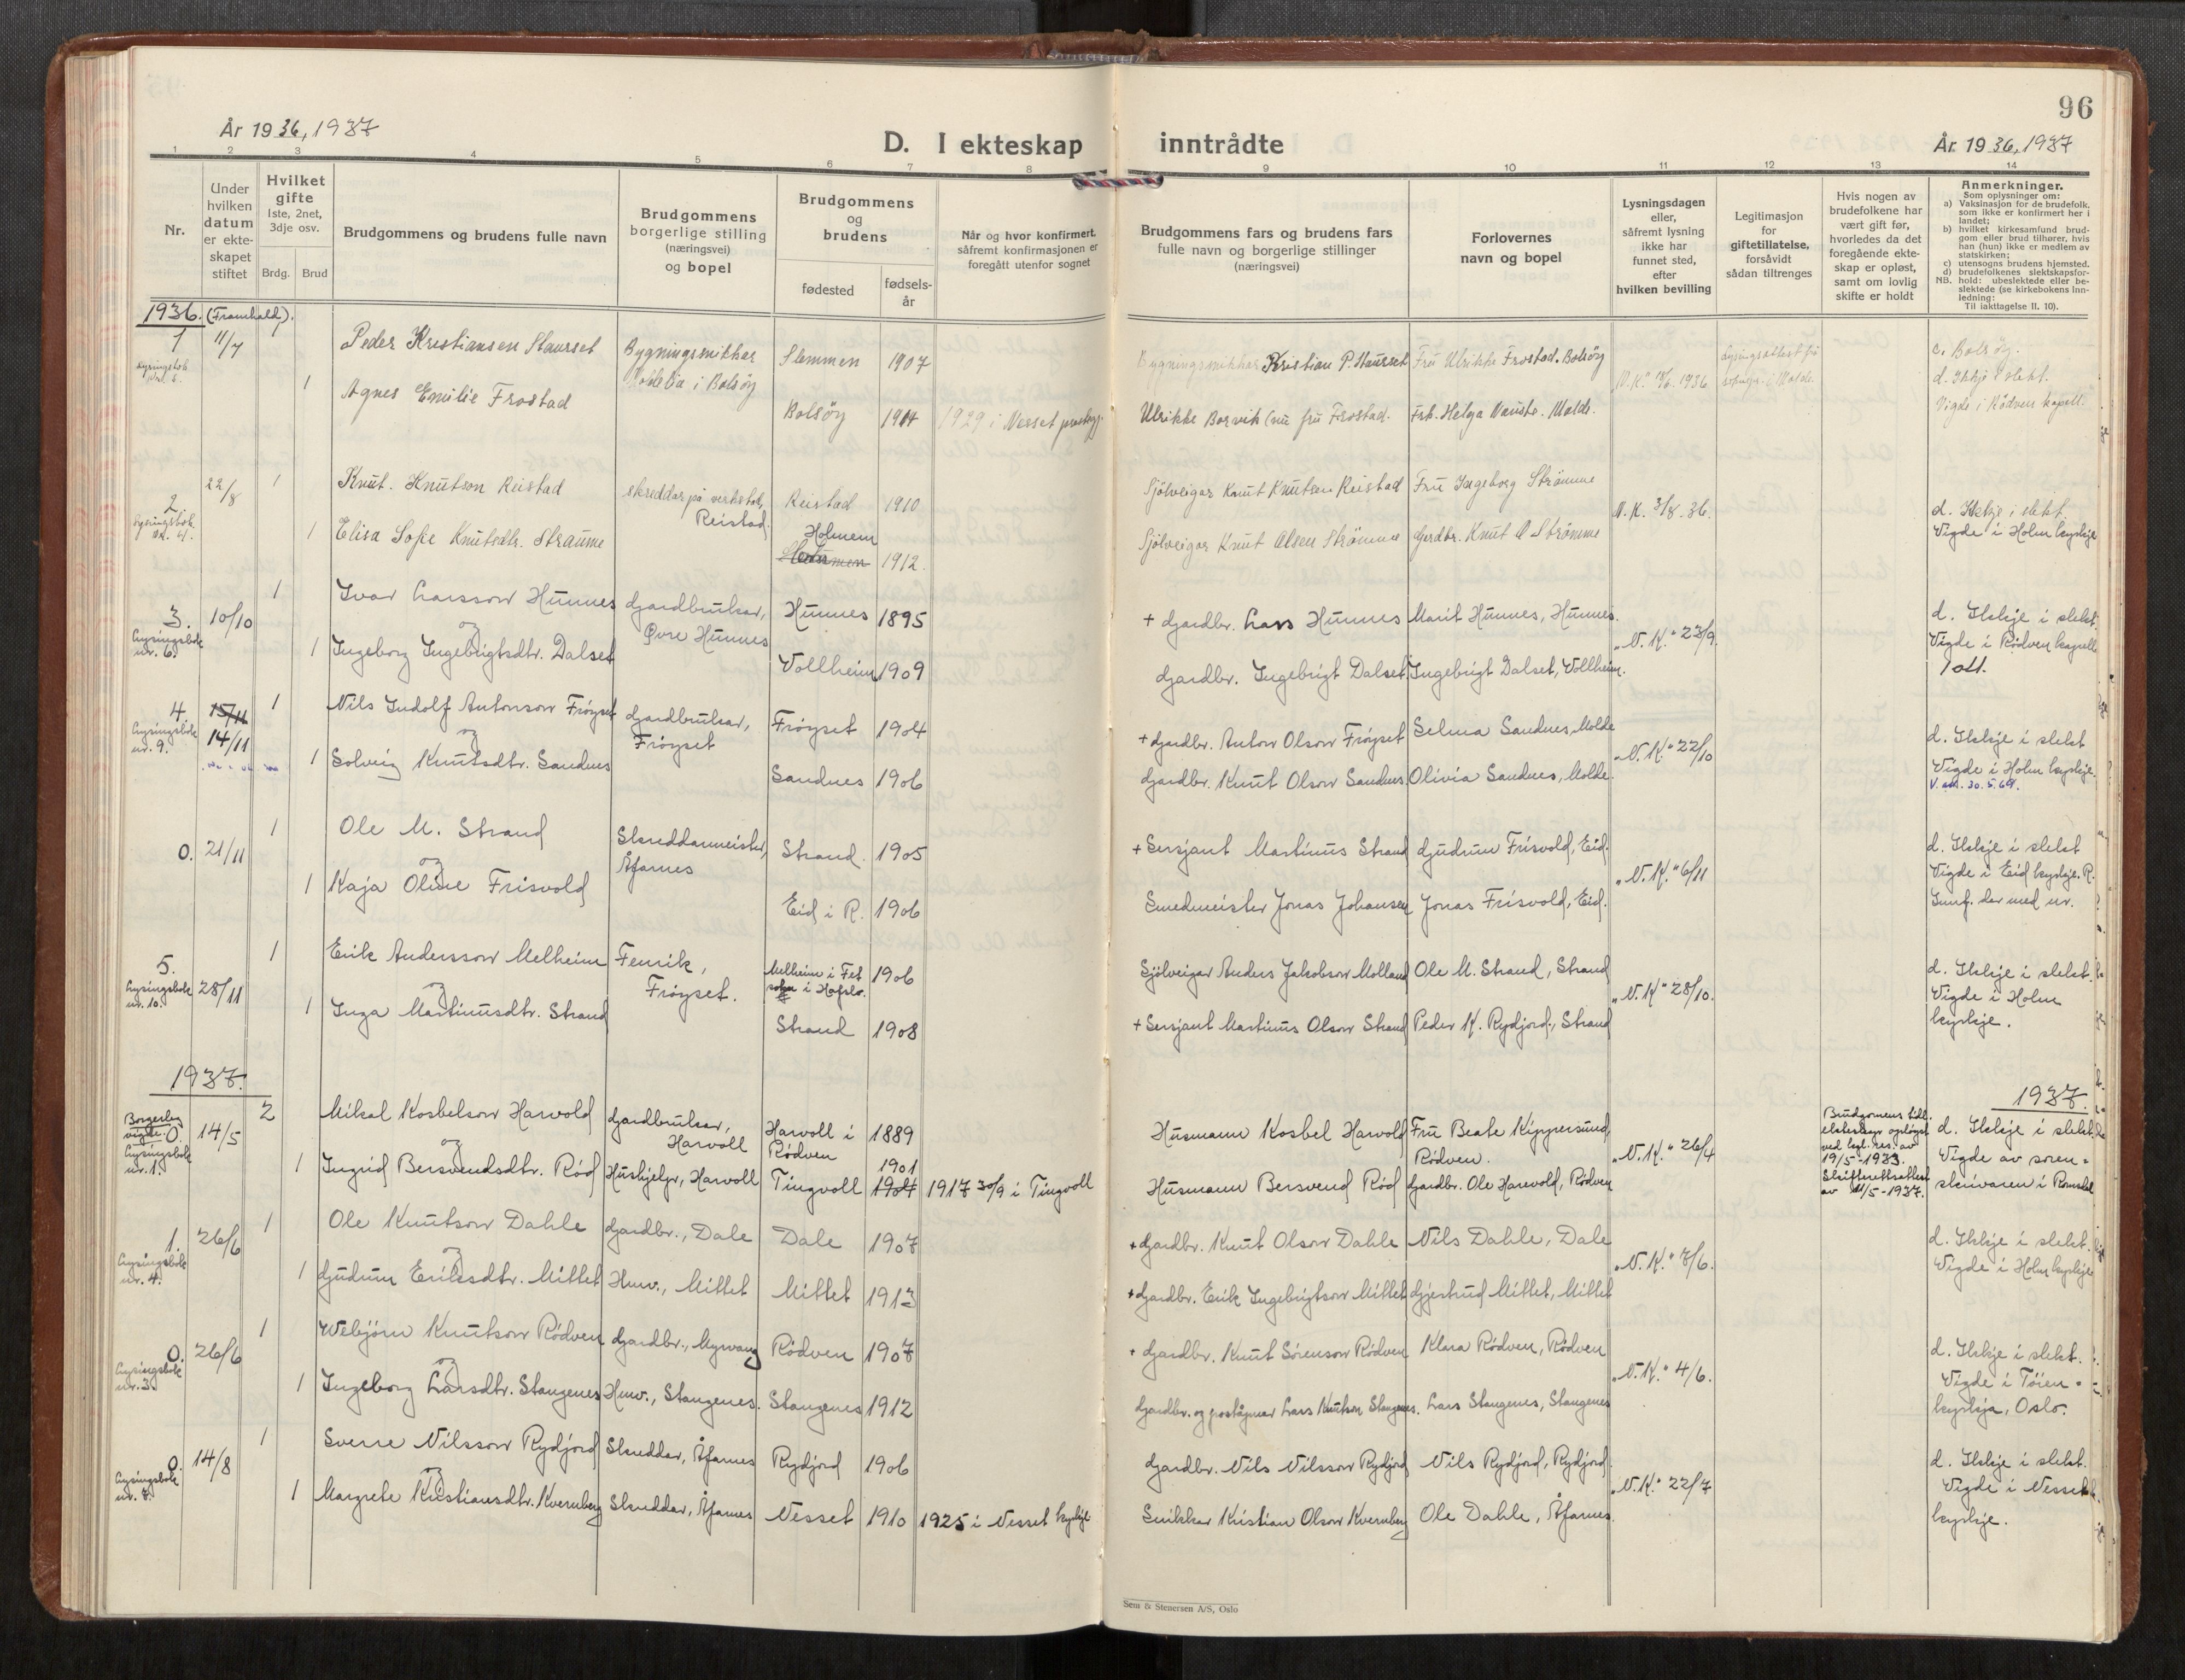 96
År 1936, 1937
D. I ekteskap inntrådte
År 1936, 1937
1 2 3 4 5 6 7 8 9 10 11 12 13 14
Nr.
Under hvilken datum er ekte-skapet stiftet
Hvilket gifte
1ste, 2net, 3dje osv.
Brdg. Brud
Brudgommens og brudens fulle navn
Brudgommens borgerlige stilling (næringsvei) og bopel
Brudgommens og brudens
fødested
fødsels-år
Når og hvor konfirmert, såfremt konfirmasjonen er foregått utenfor sognet
Brudgommens fars og brudens fars fulle navn og borgerlige stillinger (næringsvei)
Forlovernes navn og bopel
Lysningsdagen eller, såfremt lysning ikke har funnet sted, efter hvilken bevilling
Legitimasjon for giftetillatelse, forsåvidt sådan tiltrenges
Hvis nogen av brudefolkene har vært gift før, hvorledes da det foregående ekte-skap er opløst, samt om lovlig skifte er holdt
Anmerkninger.
Som oplysninger om:
a) Vaksinasjon for de brudefolk, som ikke er konfirmert her i landet;
b) hvilket kirkesamfund brud-gom eller brud tilhører, hvis han (hun) ikke er medlem av statskirken;
c) utensogns brudens hjemsted.
d) brudefolkenes slektskapsfor-hold: ubeslektede eller be-slektede (se kirkebokens Inn-ledning:
NB. Til iakttagelse II. 10).
1936. (Framhald).
1 11/7 1 Peder Kristiansen Staurset Bygningsmikhar Slemmen 1907 Kristian P. Staurset Fru Ulrikke Frostad. Bolsøy
c. Bolsøy.
d. Ikkje i slekt.
Vigde i Rødven kapell.
1 Agnes Emilie Frostad i Bolsøy Bolsøy 1914 1929 i Nesset Ulrikke Borvik (nu fru Frostad. Frk. Helga Nauste. Molde.
2. 22/8 1 Knut. Knutson Reistad skreddar på verkstad, Reistad. Reistad 1910 Sjølveigar Knut Knutsen Reistad Fru Ingeborg Strømme N.K. 3/8.36.
Lysingsbok nr. 4.
1 Elisa Sofie Knutsdtr. Straume Holmem 1912. Sjølveigar Knut Olsen Strømme Gardbr. Knut O Strømme
d. Ikkje i slekt.
Vigde i Holm kyrkje
3. 10/10 1 Ivar Larsson Hunnes Gardbrukar, Øvre Hunnes Hunnes 1895 + Gardbr. Lars Hunnes Marit Hunnes, Hunnes. „N.K.“ 23/9.
Lysingsbok nr. 6.
og
1 Ingeborg Ingebrigtsdtr. Dalset Vollheim 1909 Gardbr. Ingebrigt Dalset Ingebrigt Dalset, Vollheim.
d. Ikkje i slekt.
Vigde i Rødven kapell
4. 15/11 14/11 1 Nils Indolf Antonson Frøyset Gardbrukar, Frøyset Frøyset 1904 + Gardbr. Anton Olson Frøyset Selma Sandnes, Molde „N.K.“ 22/10
Lysingsbok nr. 9.
og
1 Solveig Knutsdtr. Sandnes Sandnes 1906 Gardbr. Knut Olson Sandnes. Olivia Sandnes, Molde.
d. Ikkje i slekt
Vigde i Holm kyrkje.
V. att. 30.5.69.
0. 21/11 1 Ole M. Strand Skreddarmeister, Åfarnes Strand. 1905 + Sersjant Martinus Strand Gudrun Frisvold, Eid. „N.K.“ 6/11
og
1 Kaja Oline Frisvold Eid i R. 1906 Smedmeister Jonas Johansen Jonas Frisvold, Eid.
d. Ikkje i slekt
Vigde i Eid kyrkje. R.
Innf. der med nr.
5. 28/11 1 Erik Andersson Melheim Fenrik, Frøyset. Melheim i Fet sokn i Hafslo. 1906 Sjølveigar Anders Jakobson Molland Ole M. Strand, Strand „N.K.“ 28/10.
Lysingsbok nr. 10.
og
1 Inga Martinusdtr. Strand Strand 1908 + Sersjant Martinus Olson Strand Peder K. Rydjord, Strand
d. Ikkje i slekt.
Vigde i Holm
kyrkje.
1937.
1937.
Borgerleg vigde. 0. 14/5 2 Mikal Kosbelson Harvold Gardbrukar, Harvoll Harvoll i Rødven 1889 Husmann Kosbel Harvold Fru Beate Kippersund, Rødven. „N.K.“ 26/4
Lysingsbok nr. 1.
og
1 Ingrid Bersvendsdtr. Rød Hushjelp, Harvoll Tingvoll 1901 1904 1917 30/9 i Tingvoll Husmann Bersvend Rød Gardbr. Ole Harevold, Rødven
Brudgomens tidl. ekteskap opløyst ved kgl. res. av 19/5-1933. Skifterettsattest av 11/5-1937.
d. Ikkje i slekt.
Vigde av soren-
skrivaren i Romsdal
1. 26/6 1 Ole Knutson Dahle Gardbr., Dale Dale 1907 + Gardbr. Knut Olson Dahle Nils Dahle, Dale „N.K.“ 7/6.
Lysingsbok nr. 4.
og
1 Gudrun Eriksdtr. Mittet Husv., Mittet Mittet 1913 + Gardbr. Erik Ingebrigtson Mittet Gjertrud Mittet, Mittet
d. Ikkje i slekt.
Vigde i Holm kyrkje
0. 26/6 1 Vebjørn Knutson Rødven Gardbr., Myrvang Rødven 1907 + Gardbr. Knut Sørenson Rødven Klara Rødven, Rødven „N.K.“ 4/6.
Lysingsbok nr. 3.
og
1 Ingeborg Larsdtr. Stangenes Husv., Stangenes. Stangenes 1912 Gardbr. og poståpnar Lars Knutson Stangenes. Lars Stangenes, Stangenes
d. Ikkje i slekt.
Vigde i Tøien-
kyrkja, Oslo.
0. 14/8 1 Sverre Nilsson Rydjord Skreddar, Åfarnes Rydjord 1906 Gardbr. Nils Nilsson Rydjord Nils Rydjord, Rydjord. „N.K.“ 22/7
Lysingsbok nr. 7.
og
1 Margrete Kristiansdtr. Kvernberg Skreddar, Åfarnes Nesset 1910 1925 i Nesset kyrkje Snikkar Kristian Olson Kvernberg Ole Dahle, Åfarnes.
d. Ikkje i slekt.
Vigde i Nesset
kyrkje.
Sem & Stenersen A/S, Oslo